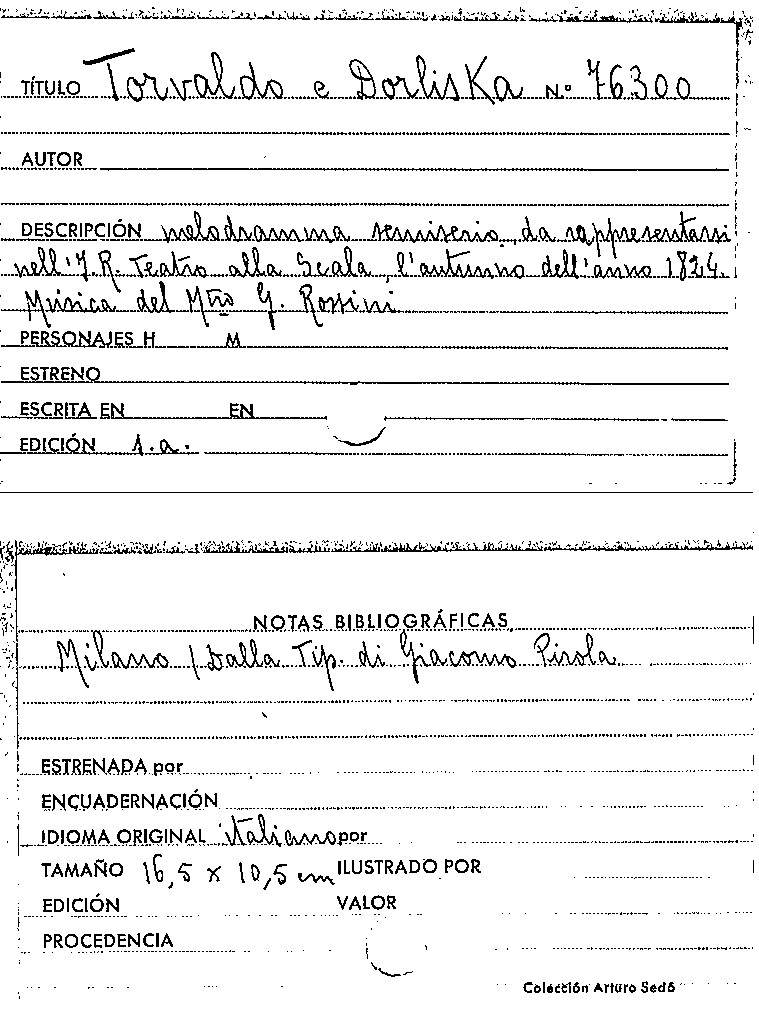 TÍTULO Torvaldo e Dorliska Nº 76300
AUTOR
DESCRIPCIÓN melodramma semiserio da rappresentarsi
nell'I.R. Teatro alla Scala, l'autunno dell'anno 1824.
Música del Mtro G. Rossini
PERSONAJES H M
ESTRENO
ESCRITA EN EN
EDICIÓN 1.a.
NOTAS BIBLIOGRÁFICAS
Milano / Dalla Tip. di Giacomo Pirola
ESTRENADA por
ENCUADERNACIÓN
IDIOMA ORIGINAL italiano por
TAMAÑO 16,5 x 10,5 cm ILUSTRADO POR
EDICIÓN VALOR
PROCEDENCIA
Colección Arturo Sedó